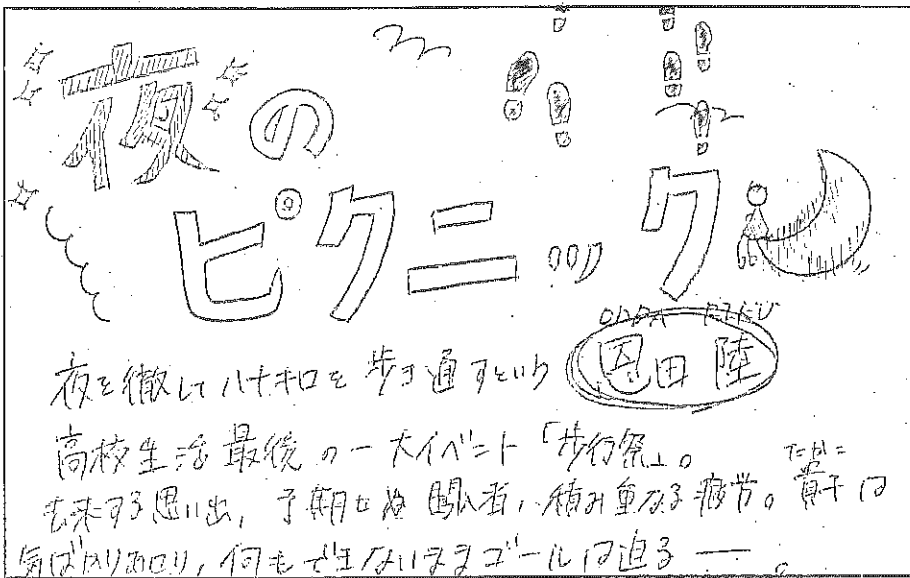 夜の
ピクニック
恩田 陸
夜を徹して八十キロを歩き通すという
高校生活最後の一大イベント「歩行祭」。
たかこ
去来する思い出、予期せぬ闖入者、積み重なる疲労。貴子は
気ばかりあせり、何もできないままゴールは迫る――。